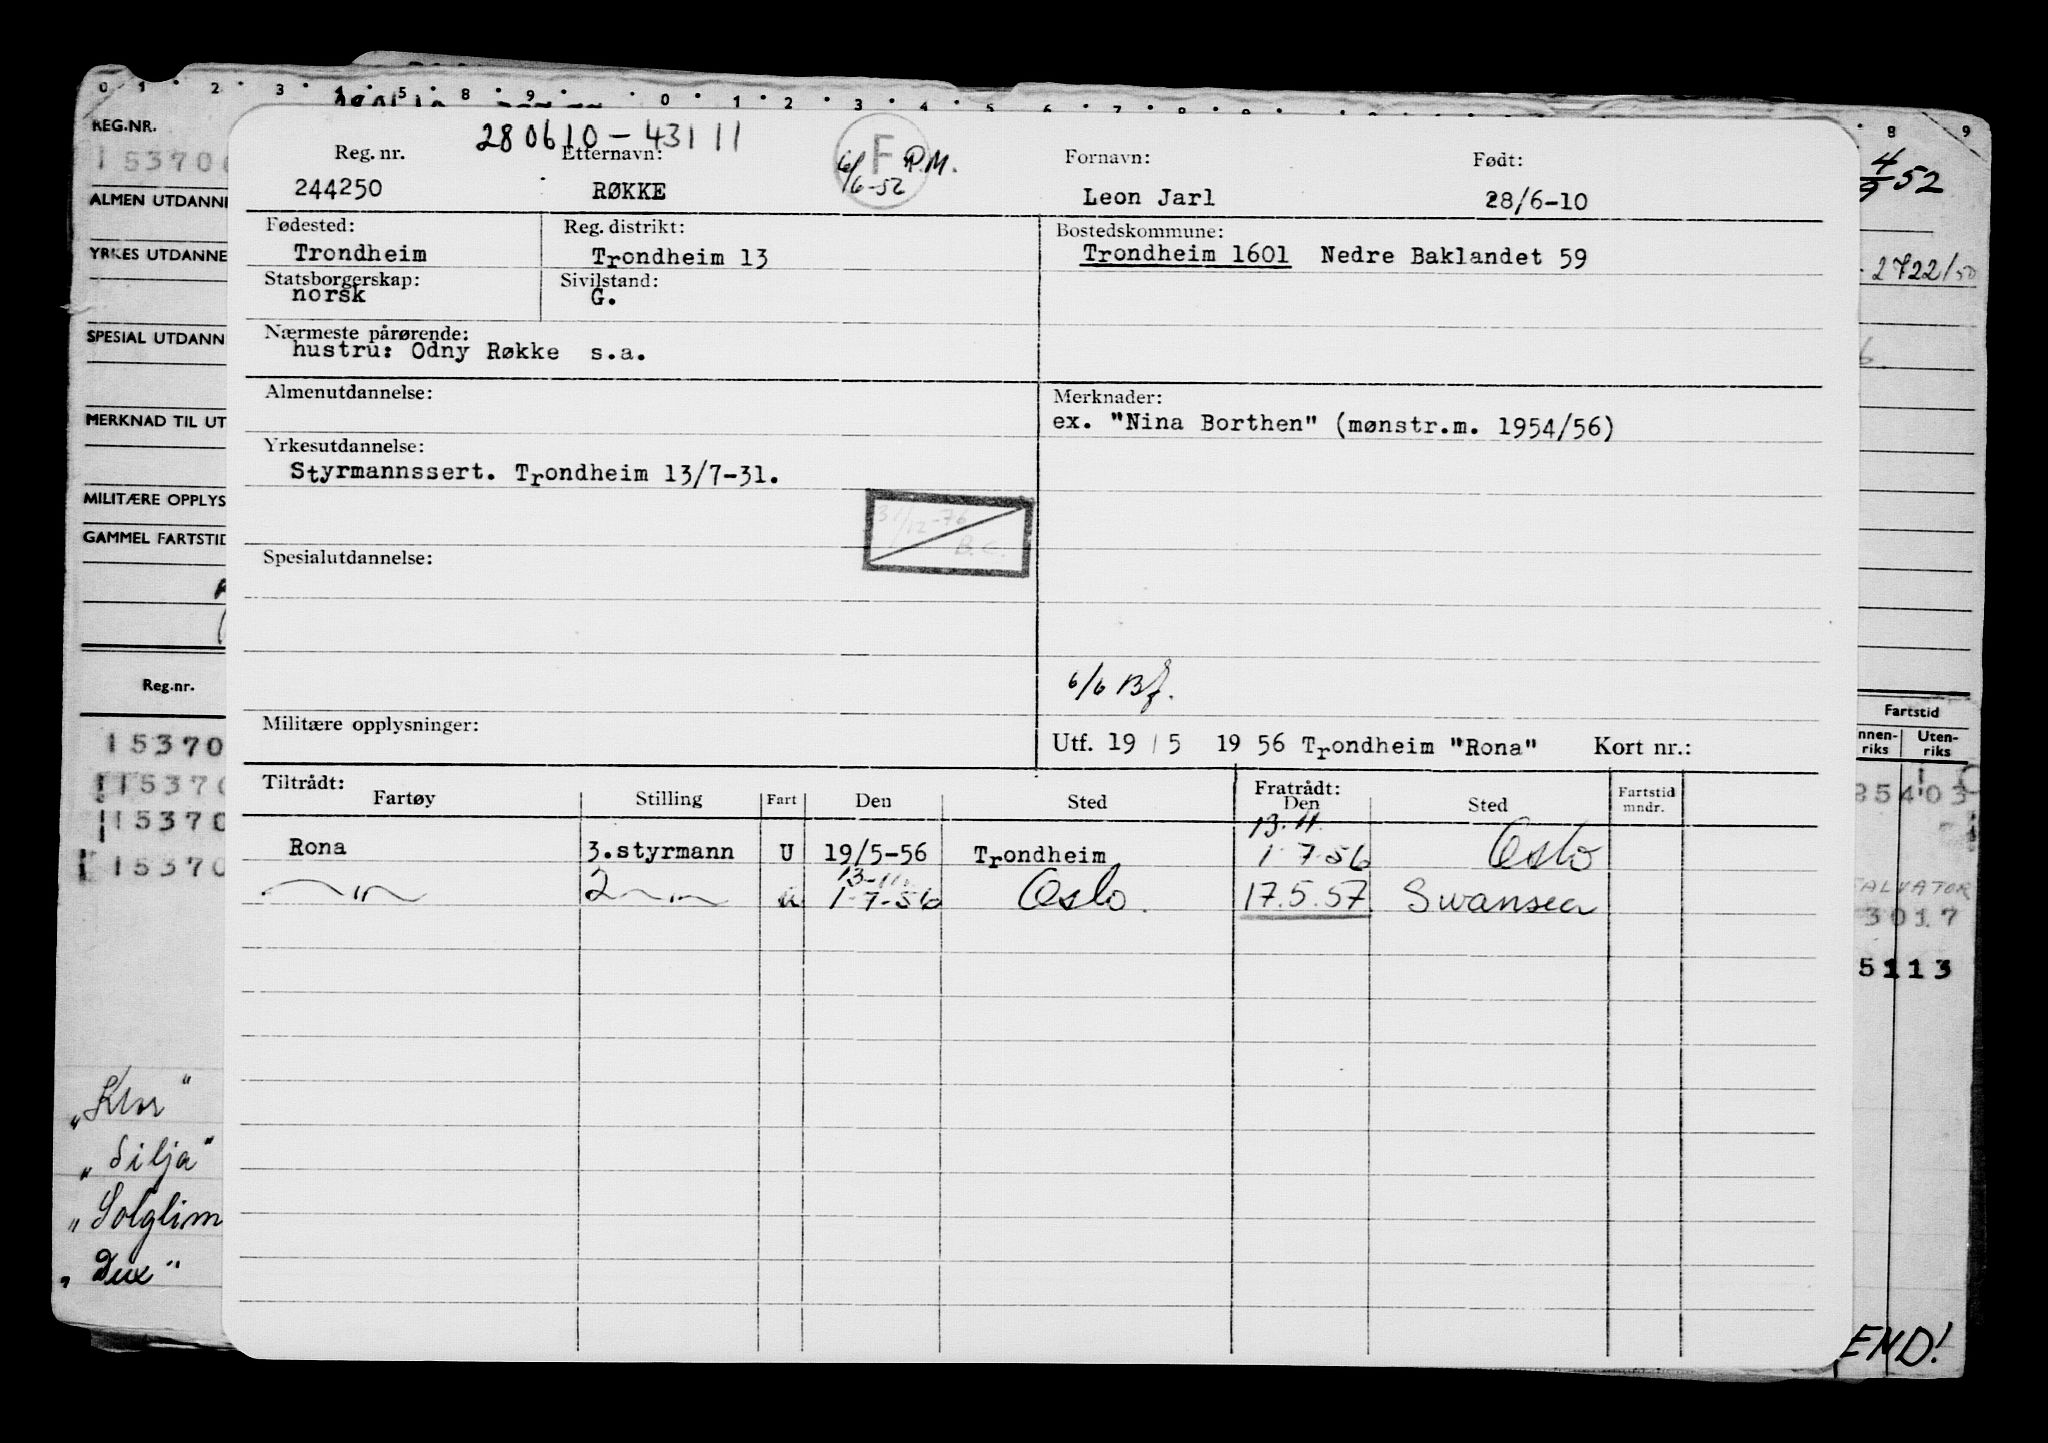 0 1 2 3 4 5 8 9 0 1 2 3 4 5 6 7 8 9 8 9
REG.NR.
ALMEN UTDANNE
YRKES UTDANNE
SPESIAL UTDANN
MERKNAD TIL UT
MILITÆRE OPPLYS
GAMMEL FARTSTID
Reg.nr.
15370
15370
15370
15370
„Klor"
„Silja"
„Solglim
„Dux"
280610-43111
Reg. nr. Etternavn: F Fornavn: Født:
6/6-52 P.M.
244250 RØKKE Leon Jarl 28/6-10
Fødested: Reg. distrikt: Bostedskommune:
Trondheim Trondheim 13 Trondheim 1601 Nedre Baklandet 59
Statsborgerskap: Sivilstand:
norsk G.
Nærmeste pårørende:
hustru: Odny Røkke s.a.
Almenutdannelse: Merknader:
ex. "Nina Borthen" (mønstr.m. 1954/56)
Yrkesutdannelse:
Styrmannssert. Trondheim 13/7-31.
31/12-76
B.C.
Spesialutdannelse:
6/6 Bf.
Militære opplysninger:
Utf. 19 / 5 19 56 Trondheim "Rona" Kort nr.:
Tiltrådt: Fratrådt:
Fartøy Stilling Fart Den Sted Den Sted Fartstid mndr.
13.11.
Rona 3.styrmann U 19/5-56 Trondheim 1-7-56 Oslo
13-11.
—"— 2—"— u 1-7-56 Oslo. 17.5.57 Swansea
4/9 52
2722/50
Fartstid
nnen-riks Uten-riks
85403
3017
5113
END!